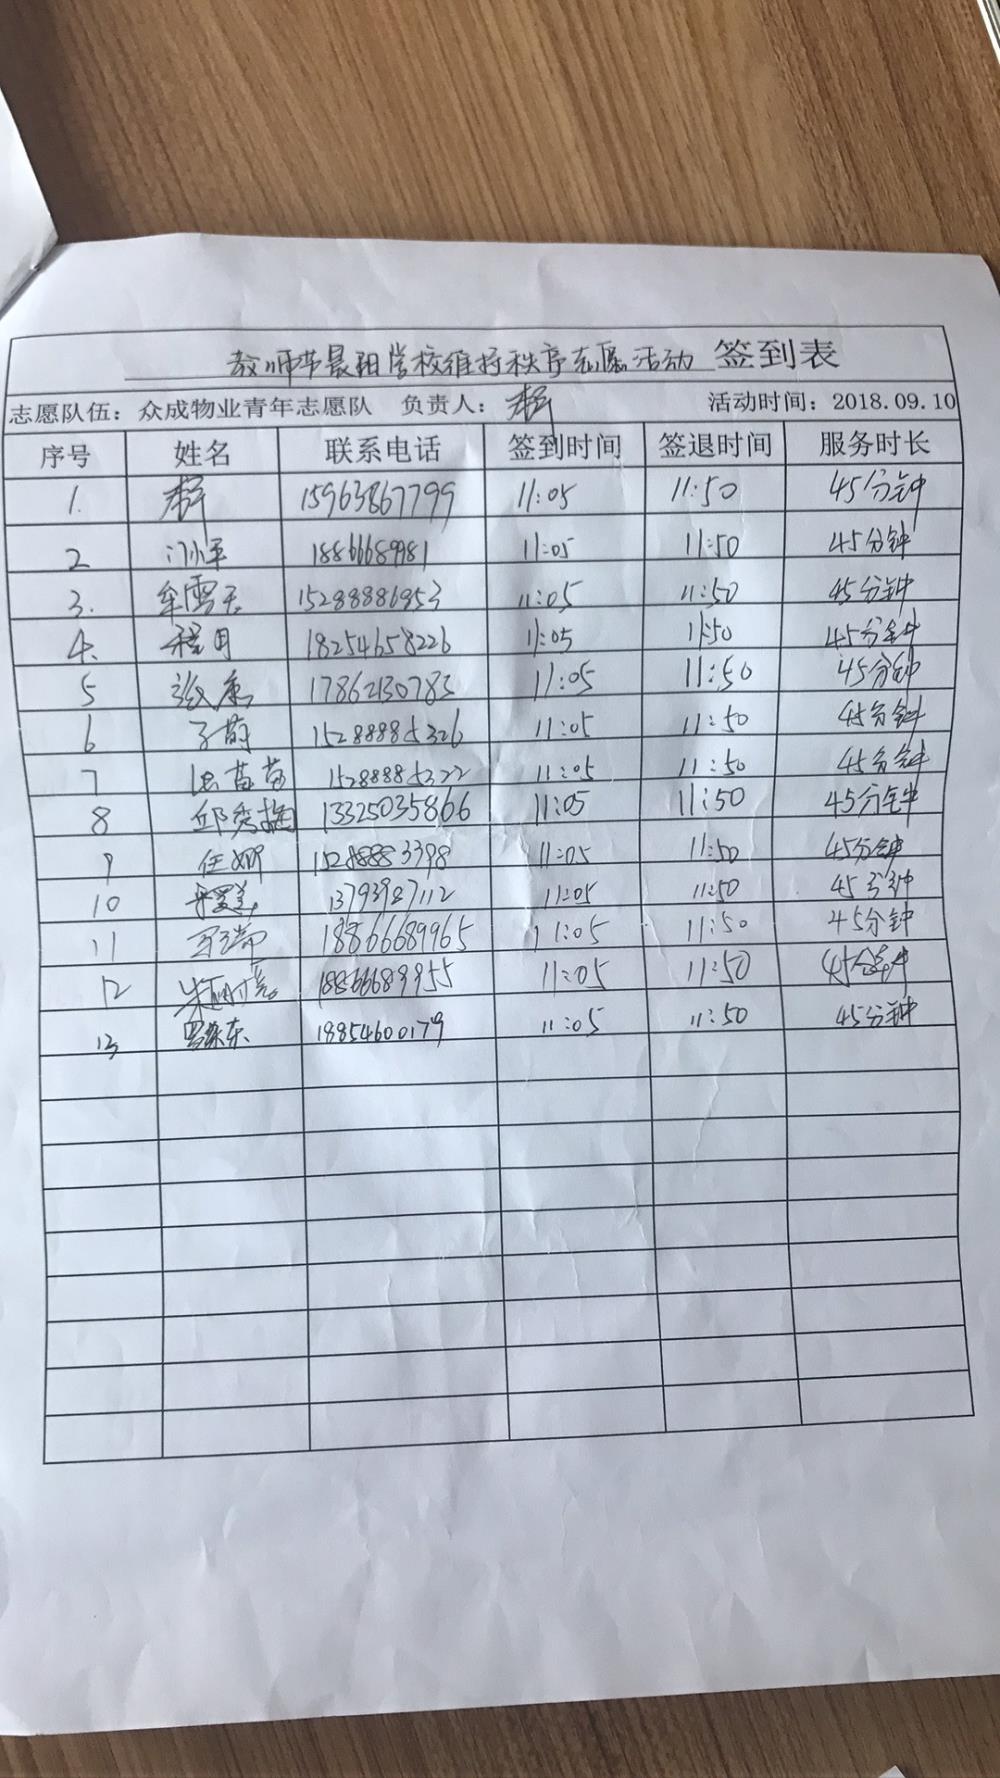 教师节晨阳学校维持秩序志愿活动 签到表
志愿队伍：众成物业青年志愿队 负责人： 活动时间：2018.09.10
序号 姓名 联系电话 签到时间 签退时间 服务时长
1. 15963867799 11:05 11:50 45分钟
2 18866689981 11:05 11:50 45分钟
3. 牟雪天 15288886953 11:05 11:50 45分钟
4. 程月 18254658226 11:05 11:50 45分钟
5 张康 17862130783 11:05 11:50 45分钟
6 15288885326 11:05 11:50 45分钟
7 苗苗 15288885322 11:05 11:50 45分钟
8 邱秀梅 13325035866 11:05 11:50 45分钟
9 任娜 15288883398 11:05 11:50 45分钟
10 13793987112 11:05 11:50 45分钟
11 18866689965 11:05 11:50 45分钟
12 18866689955 11:05 11:50 45分钟
13 18854600179 11:05 11:50 45分钟